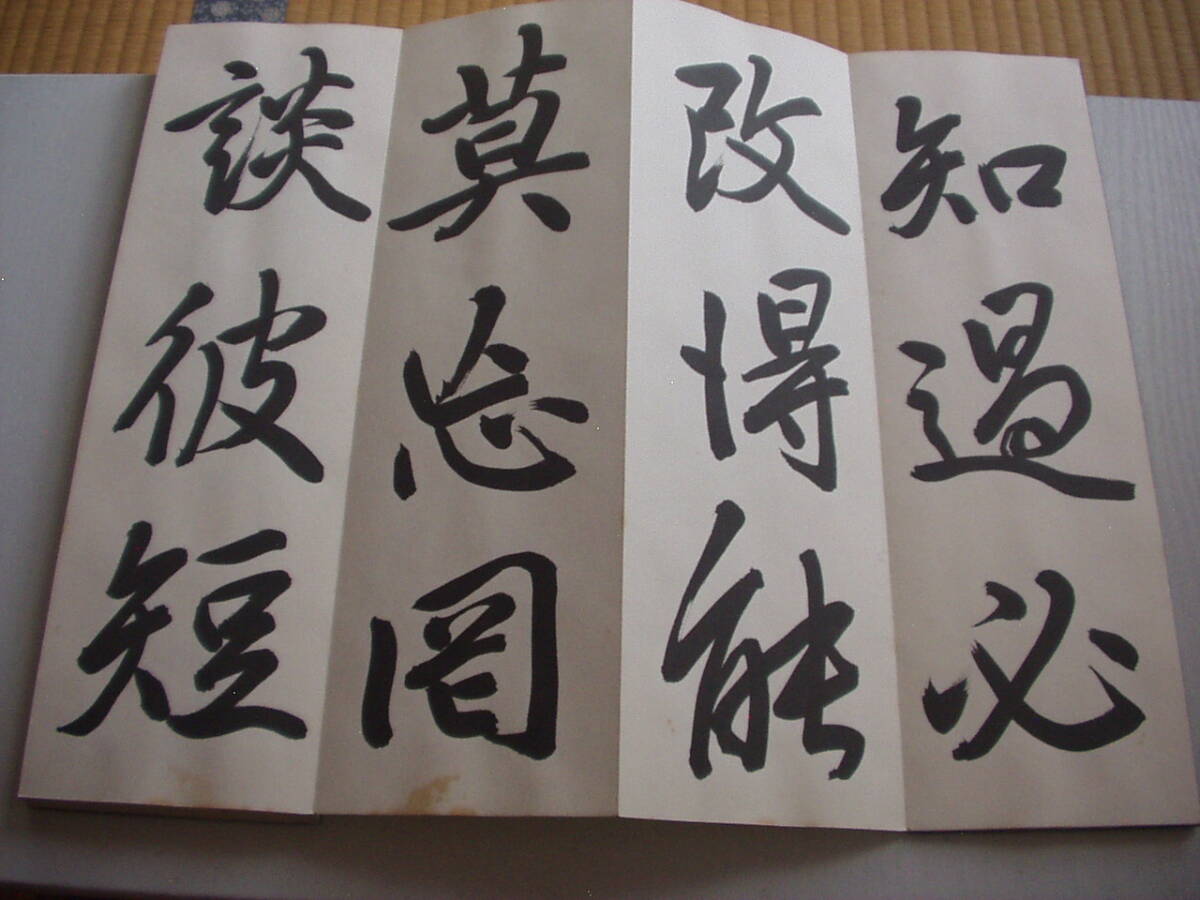 知過必
改得能
莫忘罔
談彼短